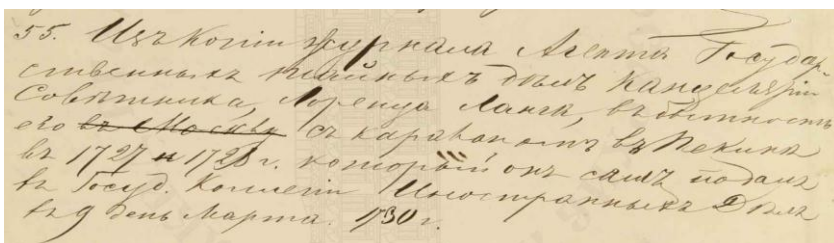 55. Изъ Копіи журнала Агента Государ-
ственныхъ тайныхъ дѣлъ Канцеляріи
Совѣтника, Лоренца Ланга, въ бытность
его въ Москву съ караваномъ въ Пекинѣ
въ 1727 и 1728 г. который онъ самъ подалъ
въ Госуд. Коллегіи Иностранныхъ Дѣлъ
въ 9 день Марта. 1730 г.